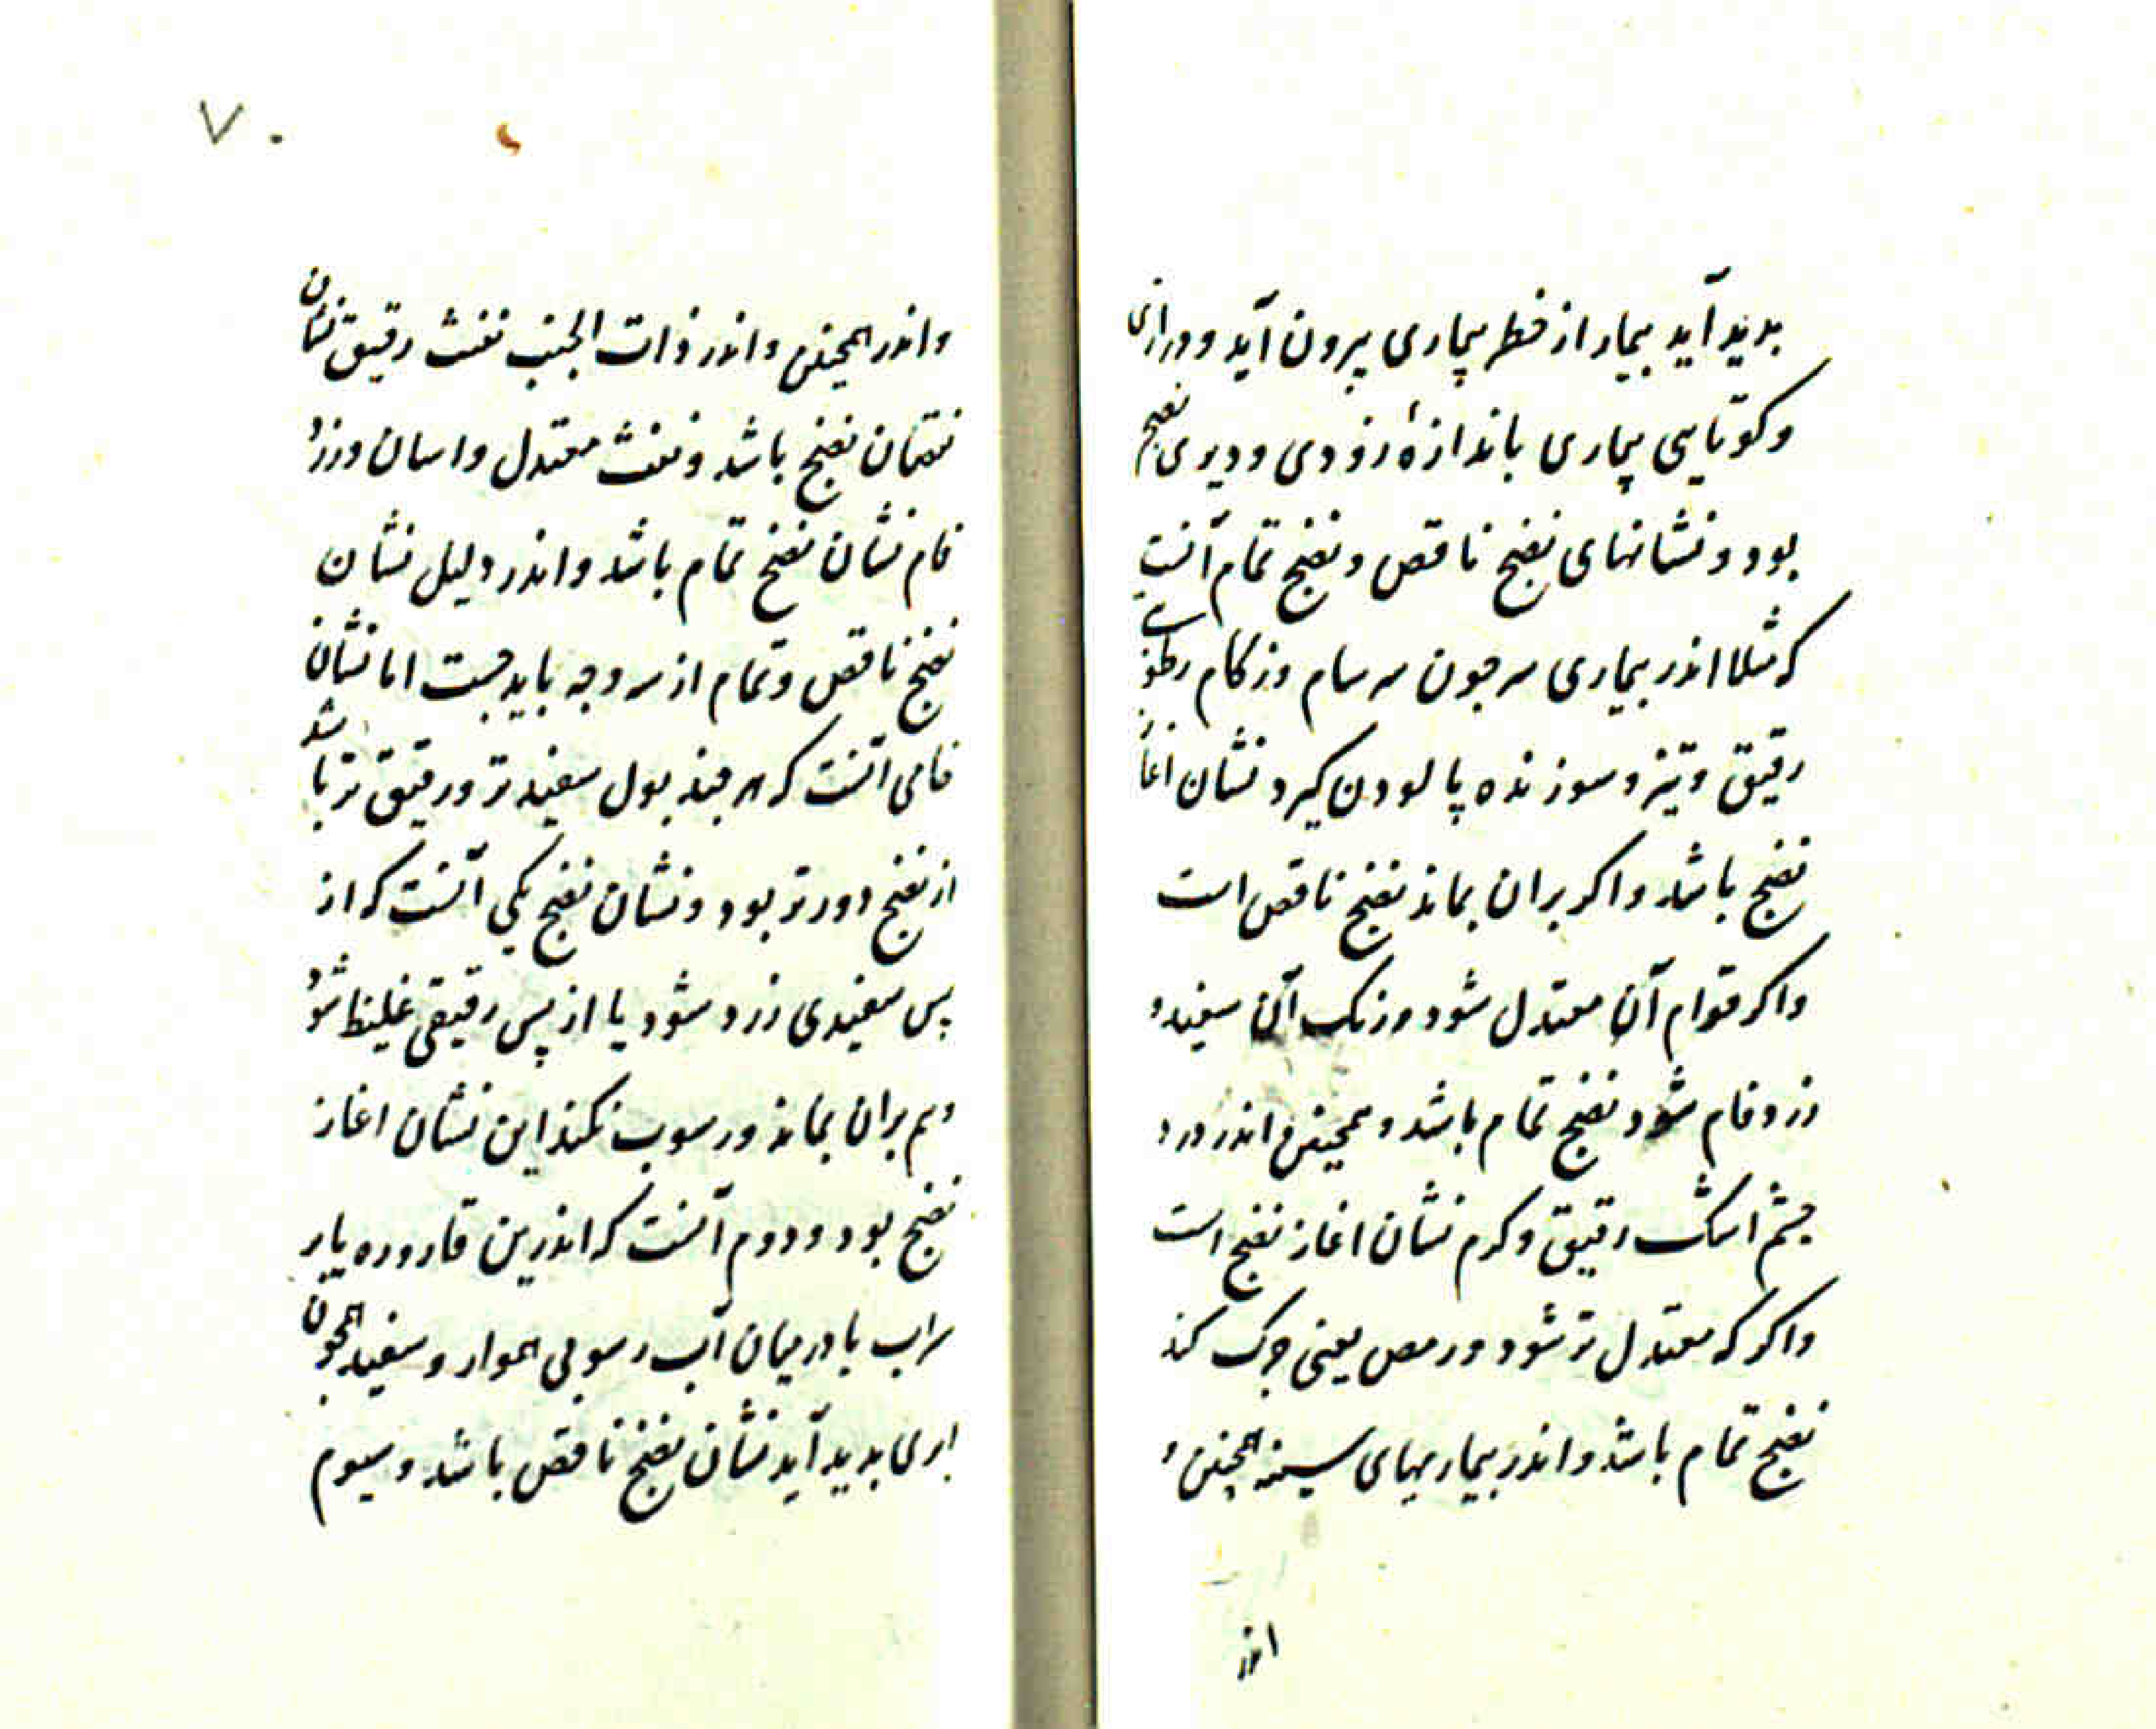 بدید آید بیمار از خطر بیماری بیرون آید و درازی
و کوتاهی بیماری باندازهٔ زودی و دیری نضج
بود و نشانهای نضج ناقص و نضج تمام آنست
که مثلا اندر بیماری سر جون سرسام و زکام رطوبت
رقیق و تیز و سوزنده پالودن کیرد نشان اغاز
نضج باشد و اکر بران بماند نضج ناقص است
و اکر قوام آن معتدل شود و رنک آن سفید و
زرد فام شود نضج تمام باشد و همچنین اندر درد
چشم اشک رقیق و کرم نشان اغاز نضج است
و اکر که معتدل تر شود و رمص یعنی جرک کند
نضج تمام باشد و اندر بیماریهای سینه همچنین و
اندر
۷۰
و اندر همچنین و اندر ذات الجنب نفث رقیق نشان
نقصان نضج باشد و نفث معتدل و اسان و زرد
فام نشان نضج تمام باشد و اندر دلیل نشان
نضج ناقص و تمام از سه وجه باید جست اما نشان
خامی آنست که هر چند بول سفیدتر و رقیق تر باشد
از نضج دورتر بود و نشان نضج یکی آنست که از
پس سفیدی زرد شود یا از پس رقیقی غلیظ شود
و هم بران بماند و رسوب نکند این نشان اغاز
نضج بود و دوم آنست که اندرین قاروره یا بر
سراب یا در میان آب رسوبی هموار و سفید همجون
ابری بدید آید نشان نضج ناقص باشد و سیوم